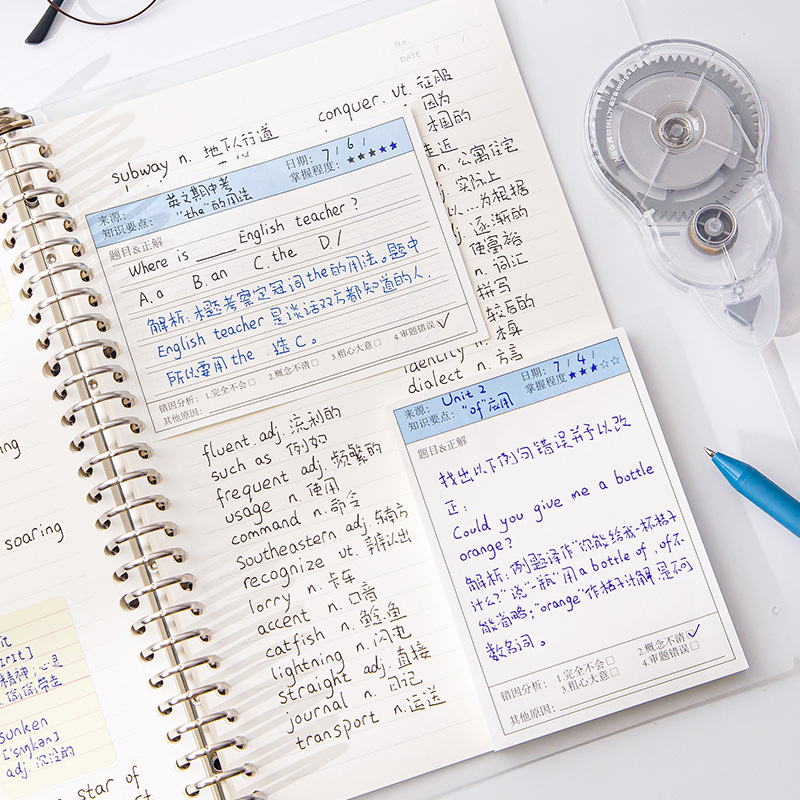 No.
DATE / /
conquer. vt. 征服
subway n. 地下人行道
因为
相的
走近
n. 公寓住宅
实际上
以…为根据
逐渐的
使富裕
n. 词汇
拼写
较后的
identity n. 本身
dialect n. 方言
来源: 英文期中考
日期: 7/6/
知识要点: "the"的用法
掌握程度: ★★★★★
题目&正解
Where is ____ English teacher?
A. a B. an C. the D. /
解析:本题考察定冠词the的用法。题中
English teacher 是谈话双方都知道的人.
所以要用the .选C。
错因分析: 1.完全不会□ 2.概念不清□ 3.粗心大意□ 4.审题错误☑
其他原因:
fluent. adj. 流利的
such as 例如
frequent adj. 频繁的
usage n. 使用
command n. 命令
southeastern adj. 东南方
recognize vt. 辨认出
lorry n. 卡车
accent n. 口音
catfish n. 鲶鱼
lightning n. 闪电
straight adj. 直接
journal n. 日记
transport n. 运送
来源: Unit 2
日期: 7/4/
知识要点: "of"应用
掌握程度 ★★★☆☆
题目&正解
找出以下例句错误并予以改
正:
Could you give me a bottle
orange?
解析:例题译作"你能给我一杯桔子
汁么?"说"一瓶"用a bottle of , of不
能省略;"orange"作桔子汁解是不可
数名词。
错因分析: 1.完全不会□ 2.概念不清☑
3.粗心大意□ 4.审题错误□
其他原因:
soaring
精神;心灵
sunken
['sʌŋkən]
adj. 沉没的
star of